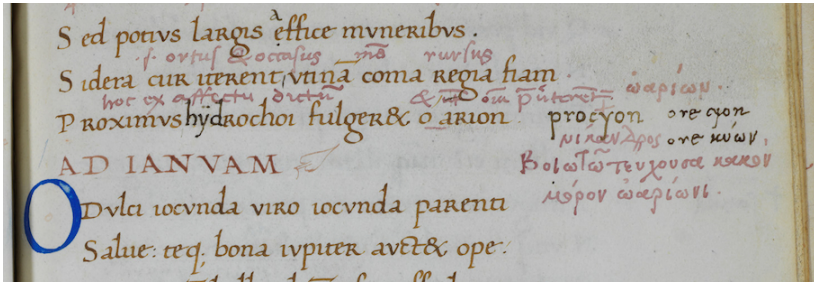 Sed potius largis effice muneribus.
s. ortus & occasus rursus
Sidera cur iterent, utina coma regia fiam
hoc ex affectu dictu
ὠαρίων.
Proximus hydrochoi fulger& oarion procyon ore cyon
νίκανδρος ore κύων.
AD IANVAM
Βοιωτῶ τεύχουσα κακὸν
μόρον ὠαρίωνι.
O Dulci iocunda viro iocunda parenti
Salue: teq; bona iupiter auct& ope: